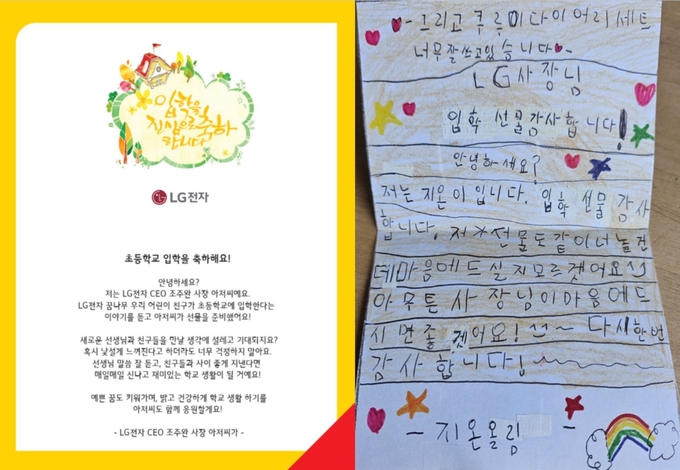 입학을
진심으로 축하
합니다
LG전자
초등학교 입학을 축하해요!
안녕하세요?
저는 LG전자 CEO 조주완 사장 아저씨예요.
LG전자 꿈나무 우리 어린이 친구가 초등학교에 입학한다는
이야기를 듣고 아저씨가 선물을 준비했어요!
새로운 선생님과 친구들을 만날 생각에 설레고 기대되지요?
혹시 낯설게 느껴진다고 하더라도 너무 걱정하지 말아요.
선생님 말씀 잘 듣고, 친구들과 사이 좋게 지낸다면
매일매일 신나고 재미있는 학교 생활이 될 거예요!
예쁜 꿈도 키워가며, 밝고 건강하게 학교 생활 하기를
아저씨도 함께 응원할게요!
- LG전자 CEO 조주완 사장 아저씨가 -
그리고 쿠루미다이어리세트
너무잘쓰고있습니다
LG사장님
입학 선물감사합니다!
안녕하세요?
저는 지온이입니다. 입학 선물 감사
합니다. 저가선물도 같이너놓건
데마음에드실지모르겠어요
아무튼사장님이마음에드
시면좋겠어요! ~ 다시한번
감사합니다!
- 지온올림 -